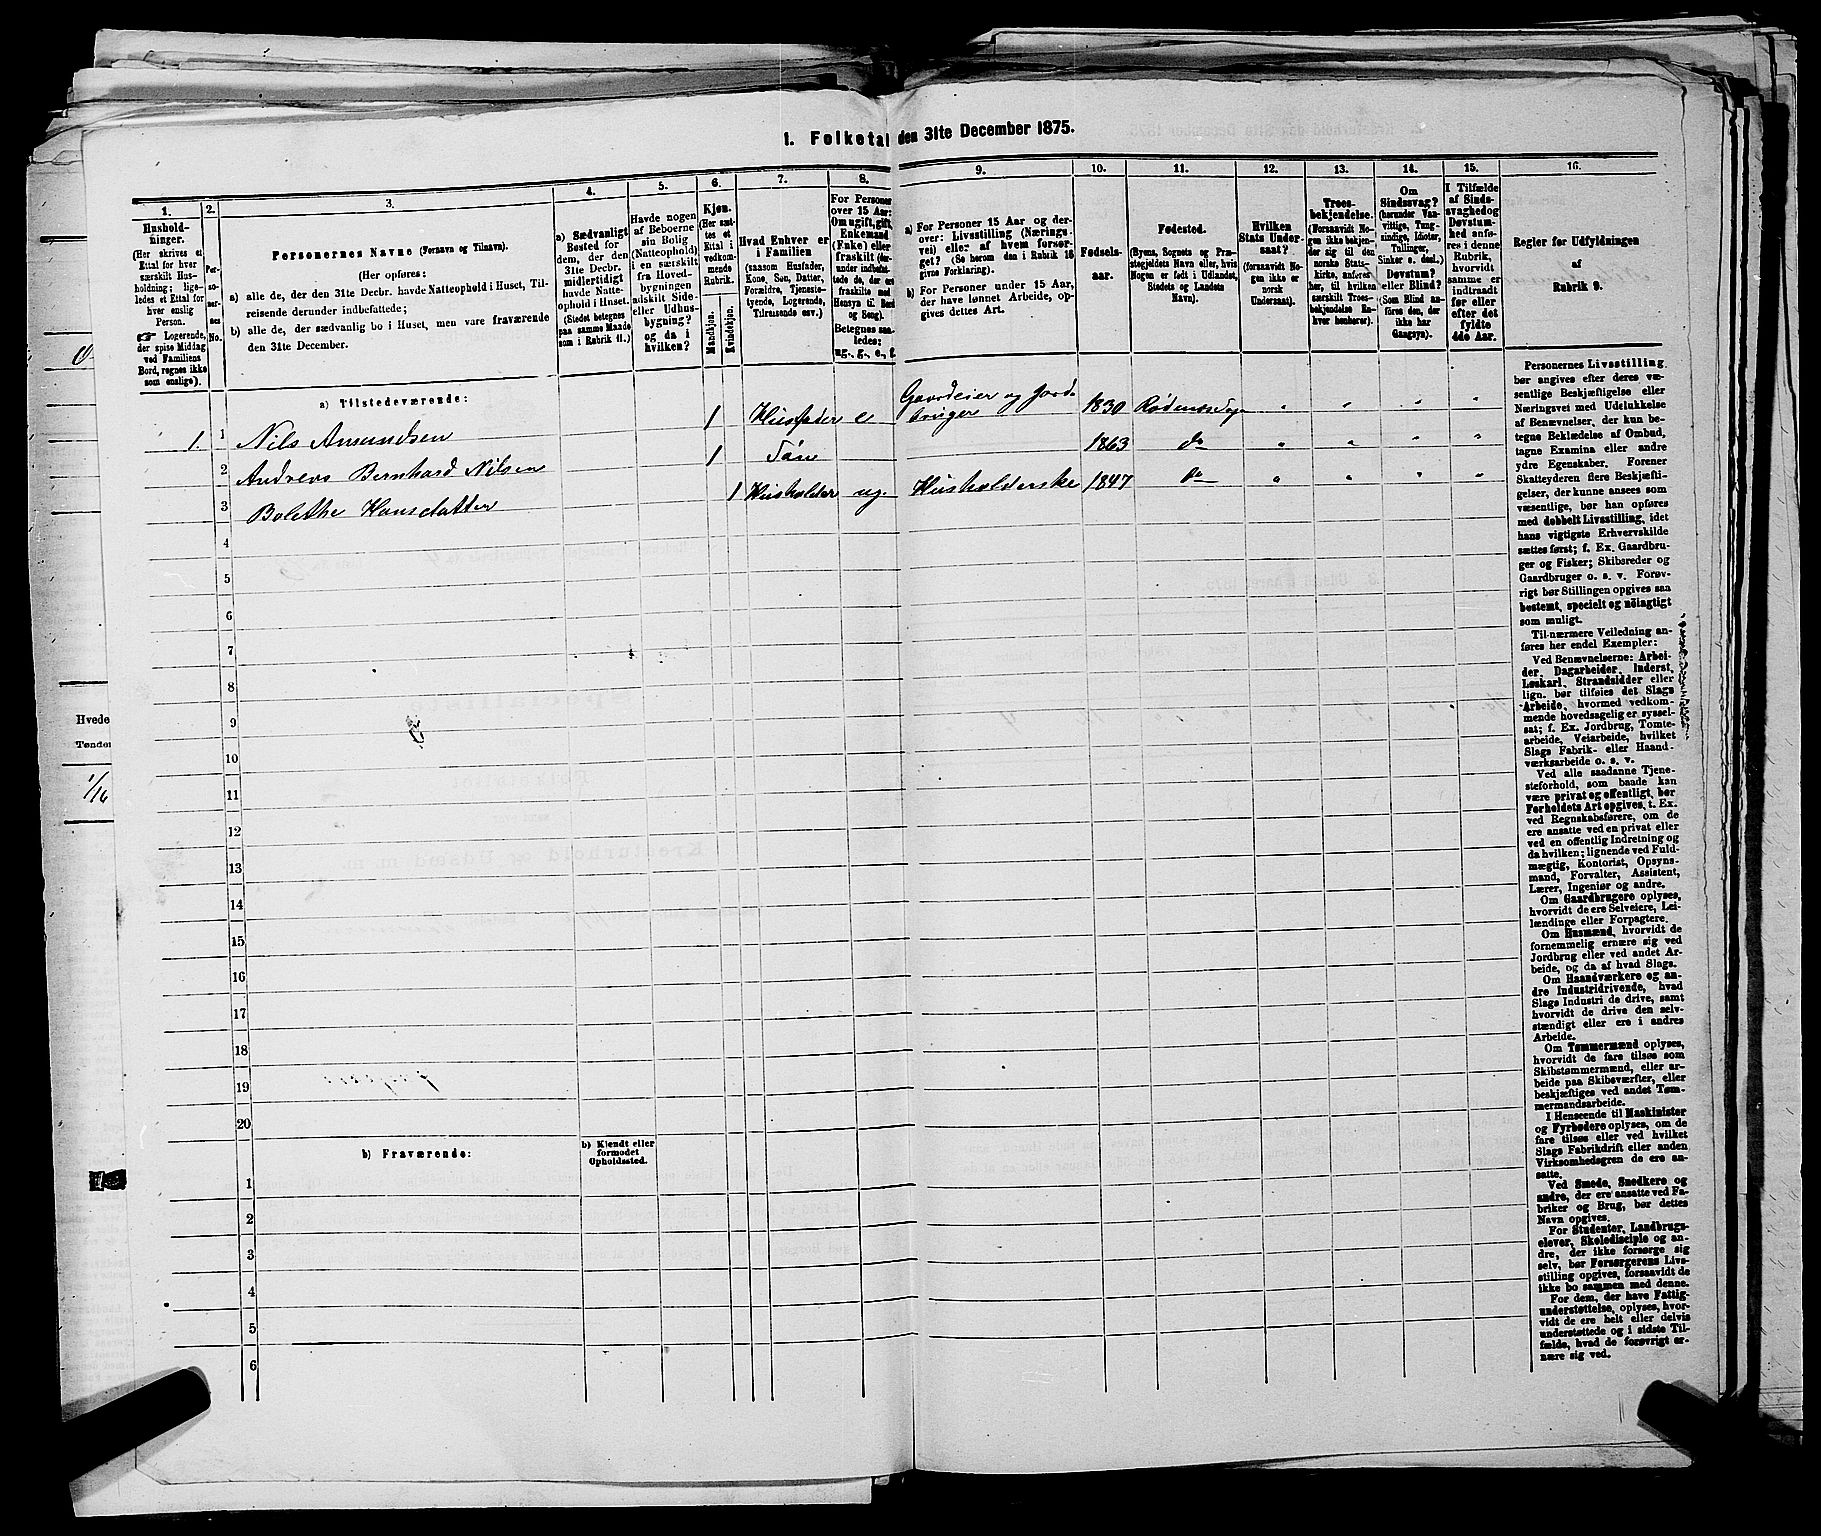 1. Folketal den 31te December 1875.
1.
Hushold-
ninger.
(Her skrives et
Ettal for hver
særskilt Hus-
holdning; lige-
ledes et Ettal for
hver enslig
Person.
☞ Logerende,
der spise Middag
ved Familiens
Bord, regnes ikke
som enslige).
2.
Per-
so-
ner-
nes
No.
3.
Personernes Navne (Fornavn og Tilnavn).
(Her opføres:
a) alle de, der den 31te Decbr. havde Natteophold i Huset, Til-
reisende derunder indbefattede;
b) alle de, der sædvanlig bo i Huset, men vare fraværende
den 31te December.
4.
a) Sædvanligt
Bosted for
dem, der den
31te Decbr.
midlertidigt
havde Natte-
ophold i Huset.
(Stedet betegnes
paa samme Maade
som i Rubrik 11.)
5.
Havde nogen
af Beboerne
sin Bolig
(Natteophold)
i en særskilt
fra Hoved-
bygningen
adskilt Side-
eller Udhus-
bygning?
og da i
hvilken?
6.
Kjøn.
(Her sæt-
tes et
Ettal i
vedkom-
mende
Rubrik.
Mandkjøn.
Kvindekjøn.
7.
Hvad Enhver er
i Familien
(saasom Husfader,
Kone, Søn, Datter,
Forældre, Tjeneste-
tyende, Logerende,
Tilreisende osv.)
8.
For Personer
over 15 Aar:
Om ugift, gift,
Enkemand
(Enke) eller
fraskilt (der-
under indbefat-
tede de, der ere
fraskilte med
Hensyn til Bord
og Seng).
Betegnes saa-
ledes:
ug., g., e., f.
9.
a) For Personer 15 Aar og der-
over: Livsstilling (Nærings-
vei) eller af hvem forsør-
get? (Se herom den i Rubrik 16
givne Forklaring).
b) For Personer under 15 Aar,
der have lønnet Arbeide, op-
gives dettes Art.
10.
Fødsels-
aar.
11.
Fødested.
(Byens, Sognets og Præ-
stegjeldets Navn eller, hvis
Nogen er født i Udlandet,
Stedets og Landets
Navn).
12.
Hvilken
Stats Under-
saat?
(forsaavidt No-
gen ikke er
norsk
Undersaat).
13.
Troes-
bekjendelse.
(Forsaavidt No-
gen ikke bekjen-
der sig til den
norske Stats-
kirke, anføres
her, til hvilken
særskilt Troes-
bekjendelse En-
hver henhører).
14.
Om
Sindssvag?
(herunder Van-
vittige, Tung-
sindige, Idioter,
Tullinger,
Sinker o. desl.)
Døvstum?
eller Blind?
(Som Blind an-
føres den, der
ikke har
Gangsyn).
15.
I Tilfælde
af Sinds-
svaghed og
Døvstum-
hed anfø-
res i denne
Rubrik,
hvorvidt
samme er
indtraadt
før eller
efter det
fyldte
4de Aar.
16.
Regler for Udfyldningen
af
Rubrik 9.
a) Tilstedeværende:
1. 1 Nils Amundsen 1 Husfader e Gaardeier og Jord-
bruger 1830 Rødenes " " " "
2 Andreas Bernhard Nilsen 1 Søn 1863 do " " " "
3 Bolethe Hansdatter 1 Husholder ug. Husholderske 1847 do " " " "
4
5
6
7
8
9
10
11
12
13
14
15
16
17
18
19
20
b) Fraværende:
b) Kjendt eller
formodet
Opholdssted.
1
2
3
4
5
6
Personernes Livsstilling
bør angives efter deres væ-
sentlige Beskjæftigelse eller
Næringsvei med Udelukkelse
af Benævnelser, der kun be-
tegne Beklædelse af Ombud,
tagne Examina eller andre
ydre Egenskaber. Forener
Skatteyderen flere Beskjæfti-
gelser, der kunne ansees som
væsentlige, bør han opføres
med dobbelt Livsstilling, idet
hans vigtigste Erhvervskilde
sættes først; f. Ex. Gaardbru-
ger og Fisker; Skibsreder og
Gaardbruger o. s. v. Forøv-
rigt bør Stillingen opgives saa
bestemt, specielt og nøiagtigt
som muligt.
Til nærmere Veiledning an-
føres her endel Exempler:
Ved Benævnelserne: Arbei-
der, Dagarbeider, Inderst,
Løskarl, Strandsidder eller
lign. bør tilføies det Slags
Arbeide, hvormed vedkom-
mende hovedsagelig er syssel-
sat; f. Ex. Jordbrug, Tomte-
arbeide, Veiarbeide, hvilket
Slags Fabrik- eller Haand-
værksarbeide o. s. v.
Ved alle saadanne Tjene-
steforhold, som baade kan
være privat og offentligt, bør
Forholdets Art opgives, t. Ex.
ved Regnskabsførere, om de
ere ansatte ved en privat eller
ved en offentlig Indretning og
da hvilken; lignende ved Fuld-
mægtig, Kontorist, Opsyns-
mand, Forvalter, Assistent,
Lærer, Ingeniør og andre.
Om Gaardbrugere oplyses,
hvorvidt de ere Selveiere, Lei-
lændinge eller Forpagtere.
Om Husmænd, hvorvidt de
fornemmelig ernære sig ved
Jordbrug eller ved andet Ar-
beide, og da af hvad Slags.
Om Haandværkere og an-
dre Industridrivende, hvad
Slags Industri de drive, samt
hvorvidt de drive den selv-
stændigt eller ere i andres
Arbeide.
Om Tømmermænd oplyses,
hvorvidt de fare tilsøs som
Skibstømmermænd, eller ar-
beide paa Skibsværfter, eller
beskjæftiges ved andet Tøm-
mermandsarbeide.
I Henseende til Maskinister
og Fyrbødere oplyses, om de
fare tilsøs eller ved hvilket
Slags Fabrikdrift eller anden
Virksomhedsgren de ere an-
satte.
Ved Smede, Snedkere og
andre, der ere ansatte ved Fa-
briker og Brug, bør dettes
Navn opgives.
For Studenter, Landbrugs-
elever, Skoledisciple og an-
dre, der ikke forsørge sig
selv, bør Forsørgerens Livs-
stilling opgives, forsaavidt de
ikke bo sammen med denne.
For dem, der have Fattig-
understøttelse, oplyses, hvor-
vidt de ere helt eller delvis
understøttede og i sidste Til-
fælde, hvad de forøvrigt er-
nære sig ved.
Hvede
Tønder
1/16